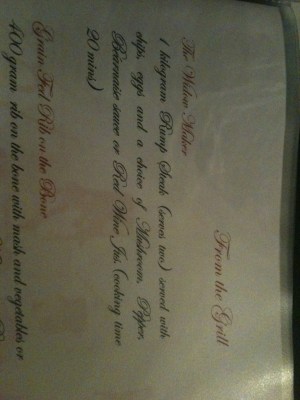 From the Grill
The Widow Maker
1 kilogram Rump Steak (serves two) served with
chips, eggs and a choice of Mushroom, Pepper,
Béarnaise sauce or Red Wine Jus. (cooking time
20 mins)
Grain Fed Rib on the Bone
400 gram rib on the bone with mash and vegetables or